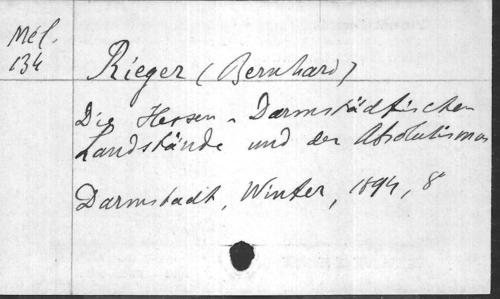 Mél.
134
Rieger (Bernhard)
Die Hessen-Darmstädtischen
Landstände und der Absolutismus
Darmstadt, Winter, 1894, 8°